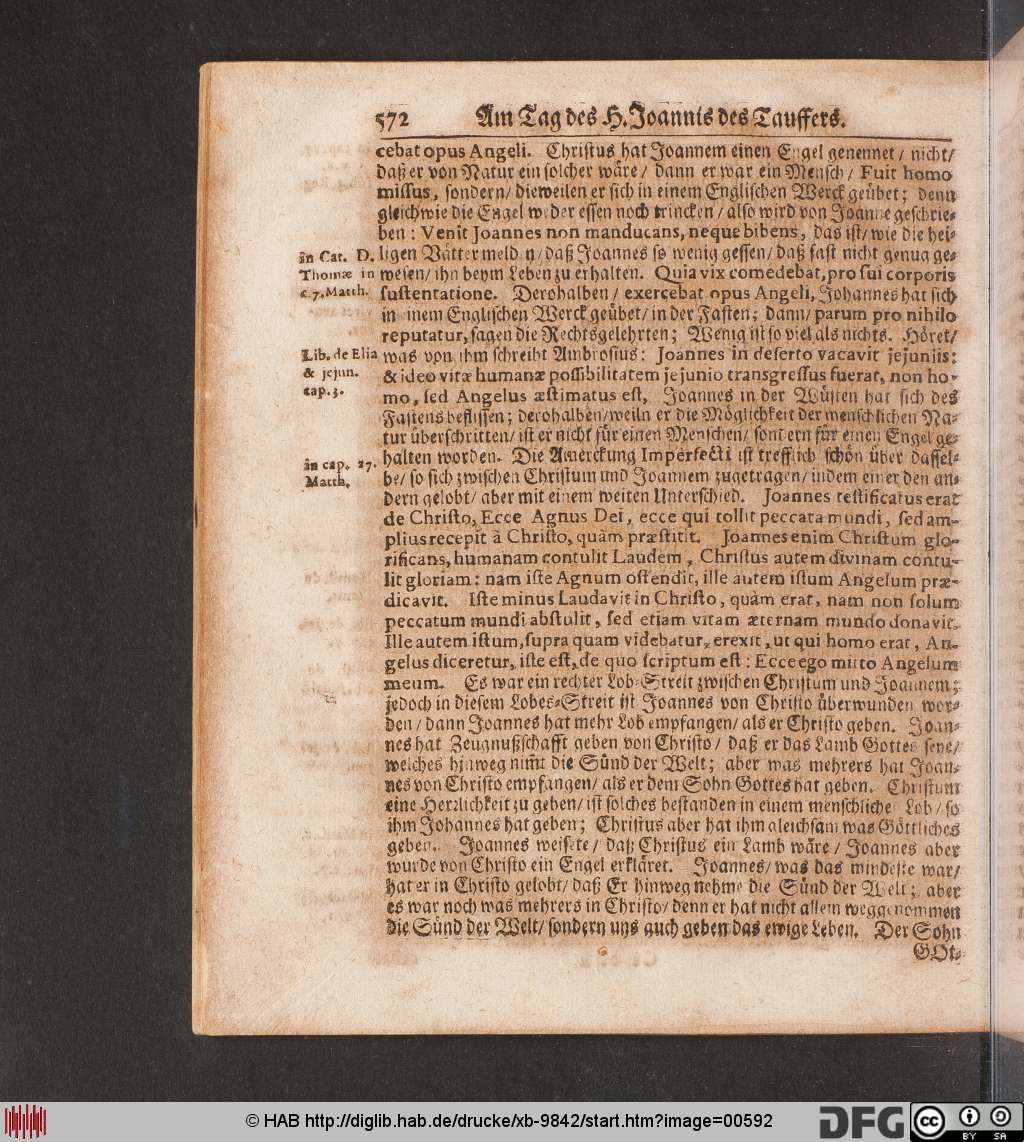 572 Am Tag des H. Joannis des Tauffers.
cebat opus Angeli. Christus hat Joannem einen Engel genennet / nicht/
daß er von Natur ein solcher wäre / dann er war ein Mensch / Fuit homo
missus, sondern/ dieweilen er sich in einem Englischen Werck geübet; denn
gleichwie die Engel weder essen noch trincken / also wird von Joanne geschrie-
ben : Venit Joannes non manducans, neque bibens, das ist/ wie die hei-
ligen Vätter melden/ daß Joannes so wenig gessen/ daß fast nicht genug ge-
wesen/ ihn beym Leben zu erhalten. Quia vix comedebat, pro sui corporis
sustentatione. Derohalben / exercebat opus Angeli, Johannes hat sich
in einem Englischen Werck geübet/ in der Fasten; dann/ parum pro nihilo
reputatur, sagen die Rechtsgelehrten; Wenig ist so viel als nichts. Höret/
was von ihm schreibt Ambrosius: Joannes in deserto vacavit jejuniis:
& ideo vitæ humanæ possibilitatem jejunio transgressus fuerat, non ho-
mo, sed Angelus æstimatus est, Joannes in der Wüsten hat sich des
Fastens beflissen; derohalben/ weiln er die Möglichkeit der menschlichen Na-
tur überschritten/ ist er nicht für einen Menschen/ sondern für einen Engel ge-
halten worden. Die Amerckung Imperfecti ist trefflich schön über dassel-
be/ so sich zwischen Christum und Joannem zugetragen/ indem einer den an-
dern gelobt/ aber mit einem weiten Unterschied. Joannes testificatus erat
de Christo, Ecce Agnus Dei, ecce qui tollit peccata mundi, sed am-
plius recepit à Christo, quàm præstitit. Joannes enim Christum glo-
rificans, humanam contulit Laudem, Christus autem divinam contu-
lit gloriam: nam iste Agnum ostendit, ille autem istum Angelum præ-
dicavit. Iste minus Laudavit in Christo, quàm erat, nam non solum
peccatum mundi abstulit, sed etiam vitam æternam mundo donavit.
Ille autem istum, supra quam videbatur, erexit, ut qui homo erat, An-
gelus diceretur, iste est, de quo scriptum est : Ecce ego mitto Angelum
meum. Es war ein rechter Lob-Streit zwischen Christum und Joannem;
jedoch in diesem Lobes-Streit ist Joannes von Christo überwunden wor-
den / dann Joannes hat mehr Lob empfangen/ als er Christo geben. Joan-
nes hat Zeugnußschafft geben von Christo / daß er das Lamb Gottes seye/
welches hinweg nim̄t die Sünd der Welt; aber was mehrers hat Joan-
nes von Christo empfangen/ als er dem Sohn Gottes hat geben. Christum
eine Herzlichkeit zu geben/ ist solches bestanden in einem menschliche Lob / so
ihm Johannes hat geben; Christus aber hat ihm gleichsam was Göttliches
geben. Joannes weisete / daß Christus ein Lamb wäre / Joannes aber
wurde von Christo ein Engel erkläret. Joannes/ was das mindeste war/
hat er in Christo gelobt/ daß Er hinweg nehme die Sünd der Welt; aber
es war noch was mehrers in Christo/ denn er hat nicht allein weggenommen
die Sünd der Welt/ sondern uns auch geben das ewige Leben. Der Sohn
GOt-
in Cat. D.
Thomæ in
c. 7. Matth.
Lib. de Elia
& jejun.
cap. 3.
in cap. 27.
Matth.
© HAB http://diglib.hab.de/drucke/xb-9842/start.htm?image=00592
DFG
cc
BY SA